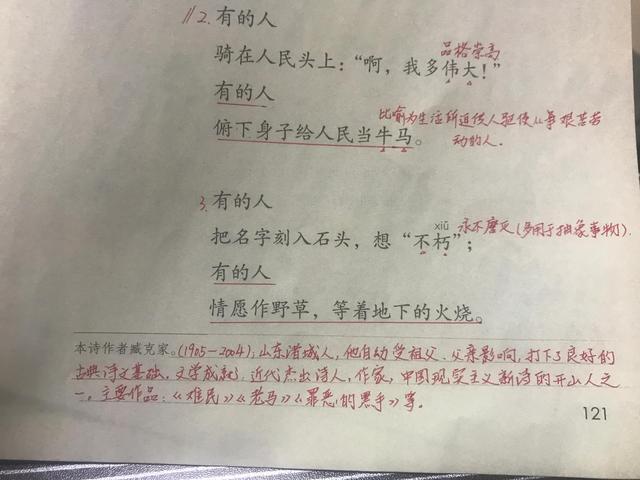 2. 有的人
骑在人民头上：“啊，我多伟大！”
品格崇高
有的人
俯下身子给人民当牛马。
比喻为生活所迫供人驱使从事艰苦劳动的人.
3. 有的人
把名字刻入石头，想“不朽”；
xiǔ
永不磨灭(多用于抽象事物).
有的人
情愿作野草，等着地下的火烧。
本诗作者臧克家。(1905－2004),山东诸城人,他自幼受祖父、父亲影响,打下了良好的
古典诗文基础。文学成就:近代杰出诗人,作家,中国现实主义新诗的开山人之
一。主要作品:《难民》《老马》《罪恶的黑手》等.
121